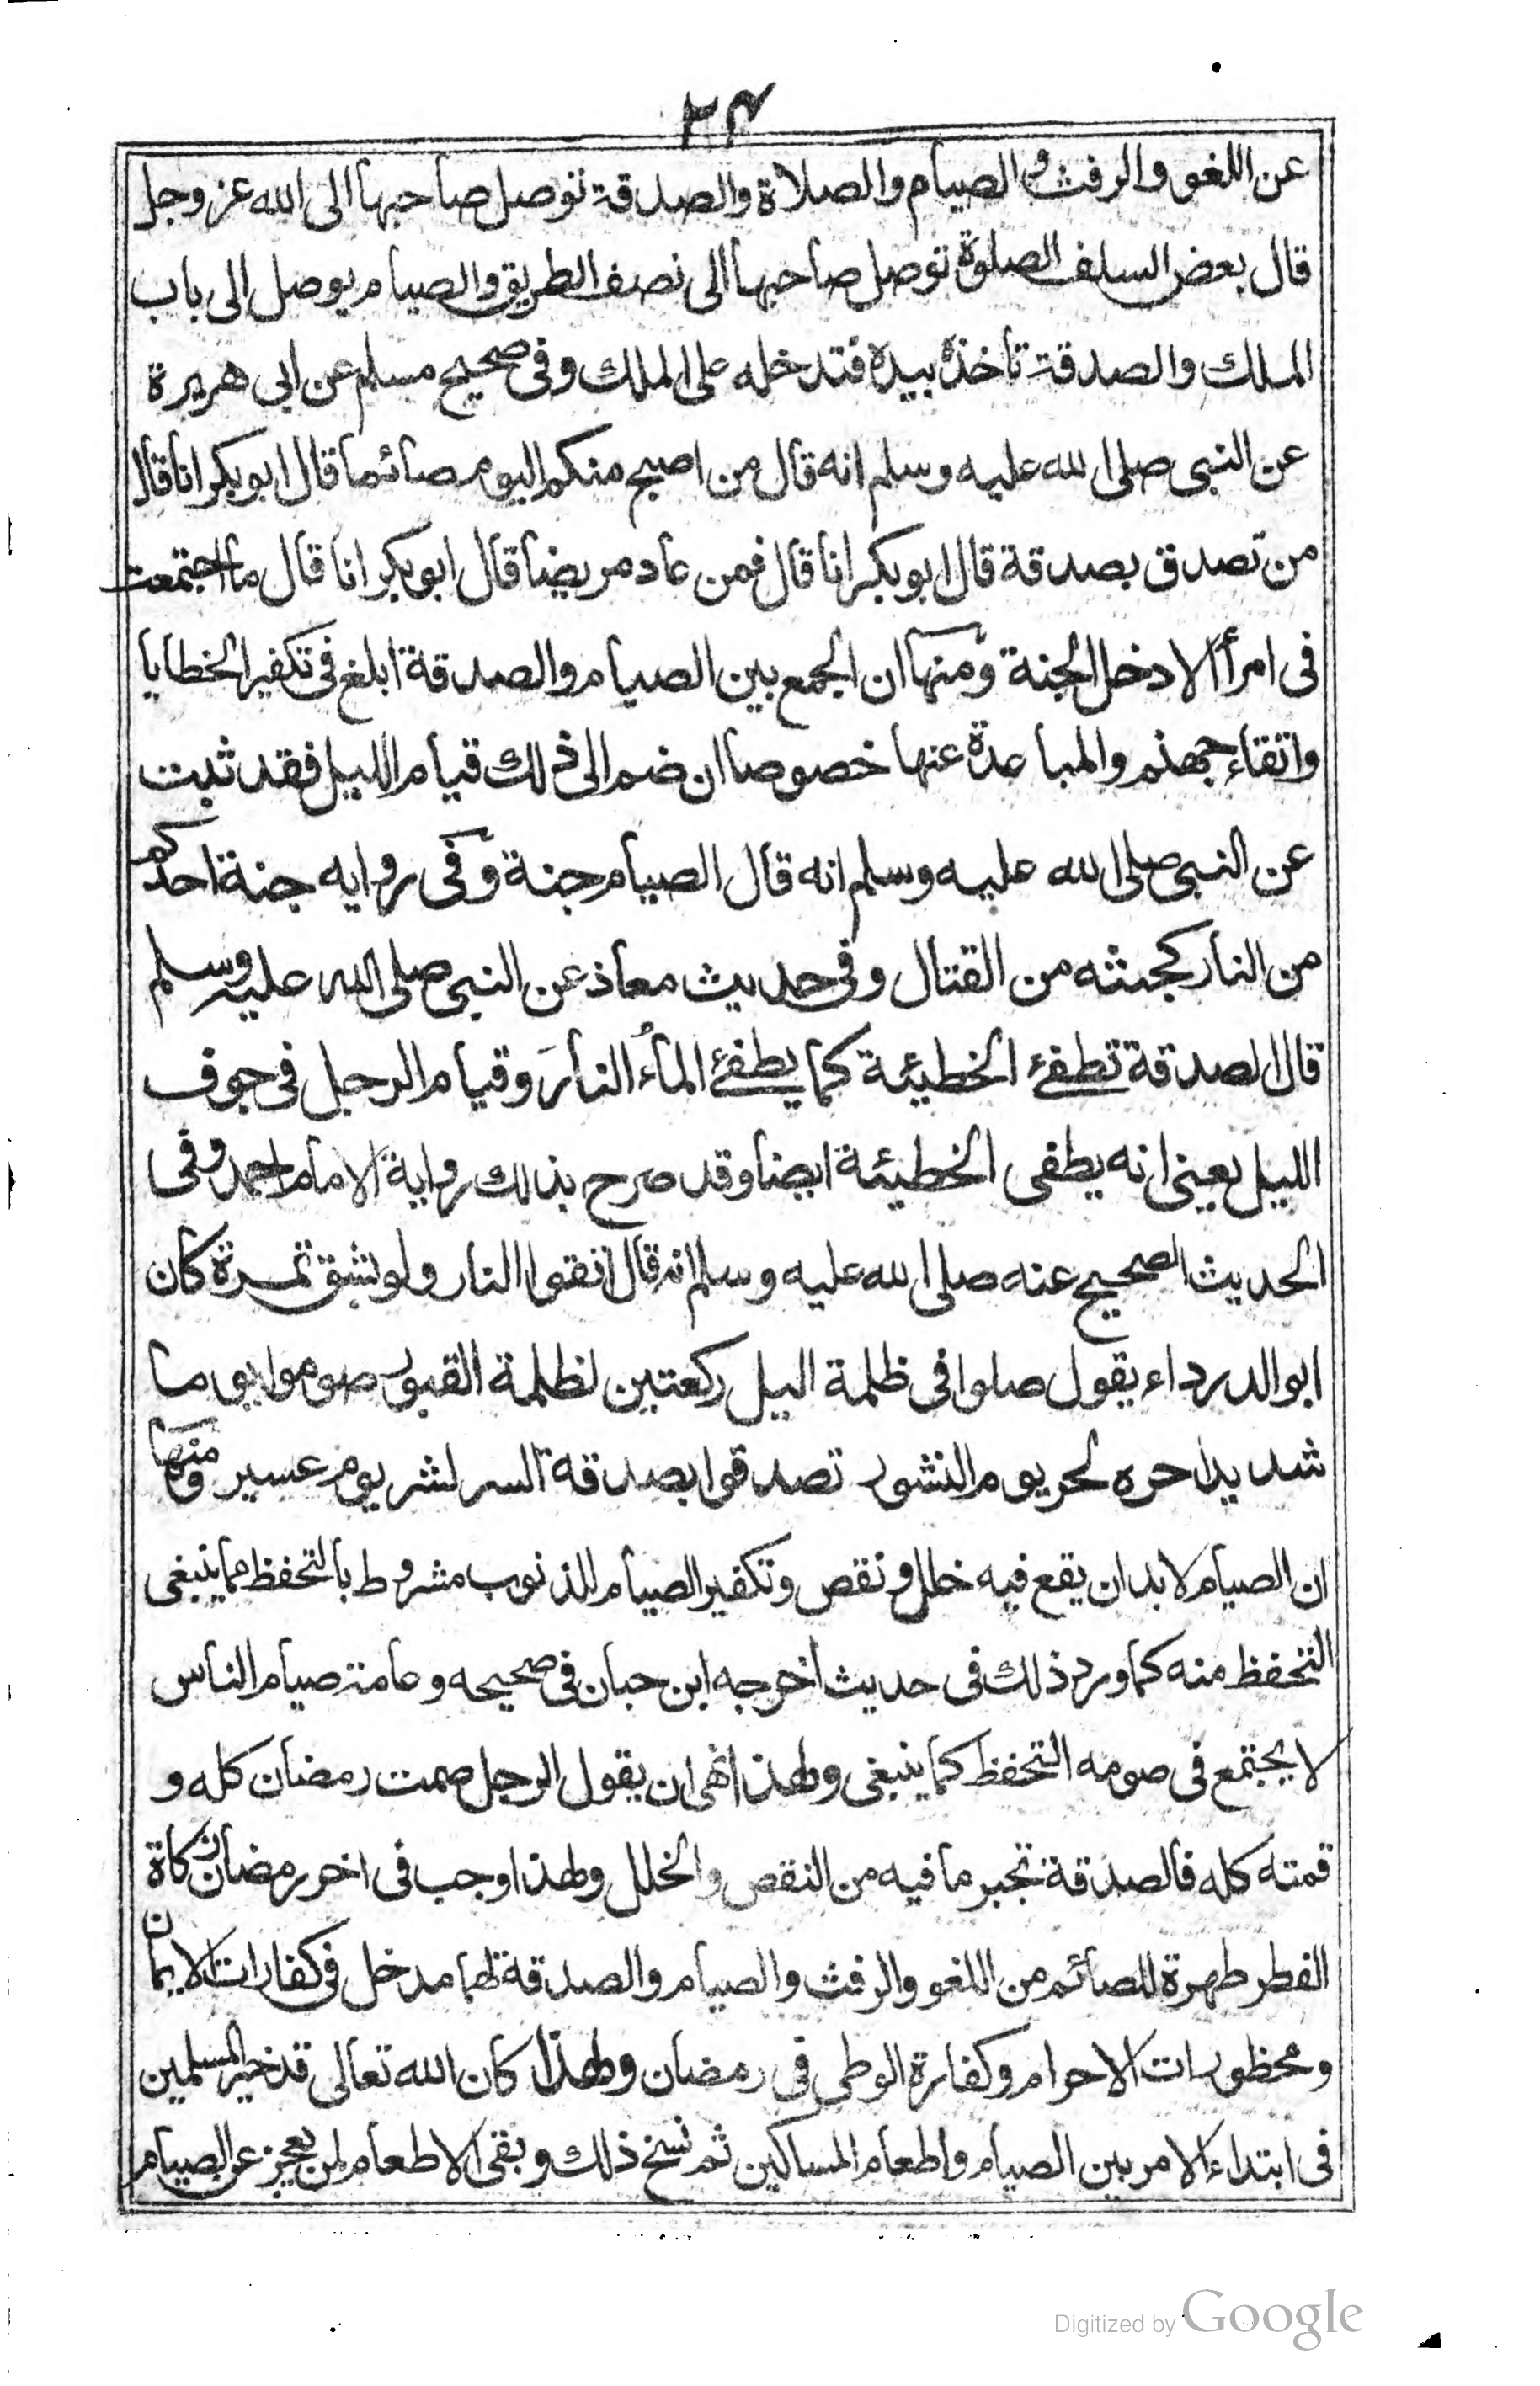 ٢٣
عن اللغو والرفث والصيام والصلاة والصدقة توصل صاحبها الى الله عز وجل
قال بعض السلف الصلوة توصل صاحبها الى نصف الطريق والصيام يوصل الى باب
الملك والصدقة تاخذه بيده فتدخله على الملك وفى صحيح مسلم عن ابى هريرة
عن النبى صلى الله عليه وسلم انه قال من اصبح منكم اليوم صائما قال ابو بكر انا قال
من تصدق بصدقة قال ابو بكر انا قال فمن عاد مريضا قال ابو بكر انا قال ما اجتمعت
فى امرأ الا دخل الجنة ومنها ان الجمع بين الصيام والصدقة ابلغ فى تكفير الخطايا
واتقاء جهنم والمباعدة عنها خصوصا ان ضم الى ذلك قيام الليل فقد ثبت
عن النبى صلى الله عليه وسلم انه قال الصيام جنة وفى رواية جنة احدكم
من النار كجنته من القتال وفى حديث معاذ عن النبى صلى الله عليه وسلم
قال الصدقة تطفئ الخطيئة كما يطفئ الماءُ النارَ وقيام الرجل فى جوف
الليل يعنى انه يطفى الخطيئة ايضا وقد صرح بذلك رواية الامام احمد وفى
الحديث الصحيح عنه صلى الله عليه وسلم انه قال اتقوا النار ولو بشق تمرة كان
ابو الدرداء يقول صلوا فى ظلمة اليل ركعتين لظلمة القبور صوموا يوما
شديدا حره لحر يوم النشور تصدقوا بصدقة السر لشر يوم عسير ومنها
ان الصيام لا بد ان يقع فيه خلل ونقص وتكفير الصيام للذنوب مشروط بالتحفظ مما ينبغى
التحفظ منه كما ورد ذلك فى حديث اخرجه ابن حبان فى صحيحه وعامة صيام الناس
لا يجتمع فى صومه التحفظ كما ينبغى ولهذا نهى ان يقول الرجل صمت رمضان كله و
قمته كله فالصدقة تجبر ما فيه من النقص والخلل ولهذا وجب فى اخر رمضان زكاة
الفطر طهرة للصائم من اللغو والرفث والصيام والصدقة لهما مدخل فى كفارات الايمان
ومحظورات الاحرام وكفارة الوطى فى رمضان ولهذا كان الله تعالى قد خير المسلمين
فى ابتداء الامر بين الصيام واطعام المساكين ثم نسخ ذلك وبقى الاطعام لمن يعجز عن الصيام
Digitized by Google